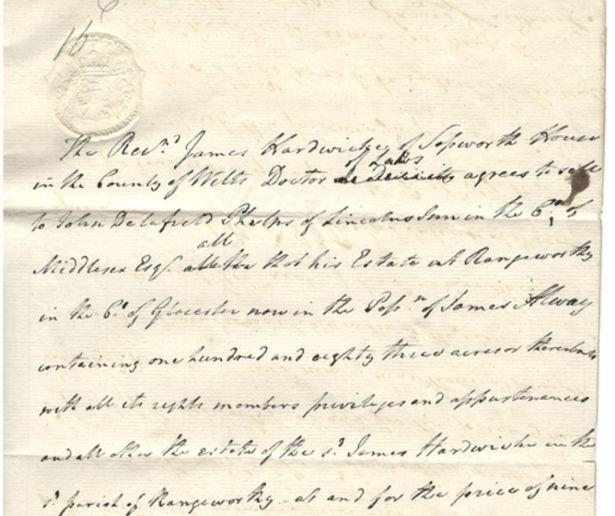 16
The Rev.d James Hardwicke of Sopworth House
of Laws
in the County of Wilts Doctor agrees to sell
to John Delafield Phelps of Lincolns Inn in the Co. of
all
Middlesex Esq. that his Estate at Rangeworthy
in the Co. of Glocester now in the Poss.n of James Alway
containing one hundred and eighty three acres or thereabouts
with all its rights members privileges and appurtenances
and all other the estate of the s.d James Hardwicke in the
s.d parish of Rangeworthy at and for the price of nine